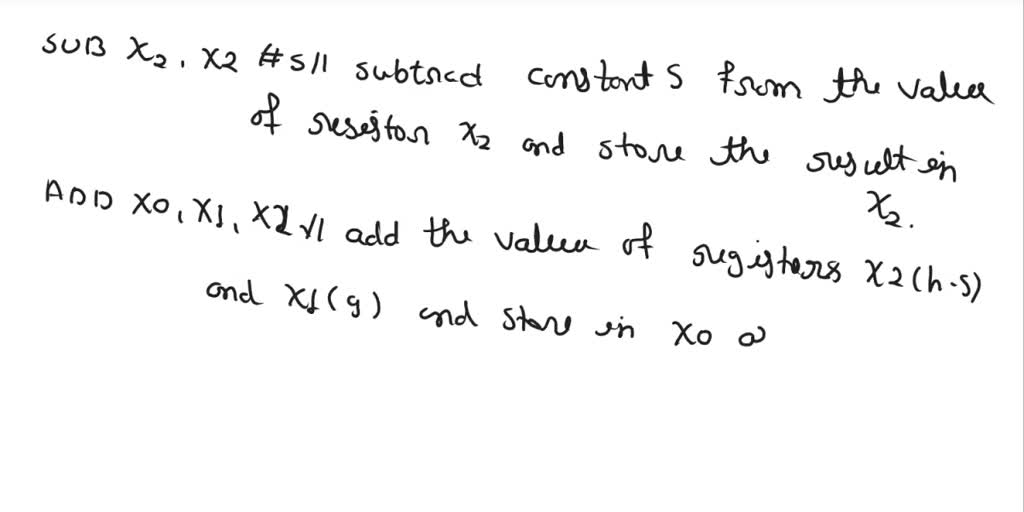 SUB X2, X2 #5 // subtract constant 5 from the value
of resejton X2 and store the result in
X2.
ADD X0, X1, X2 // add the value of registers X2 (h-5)
and X1 (g) and store in X0